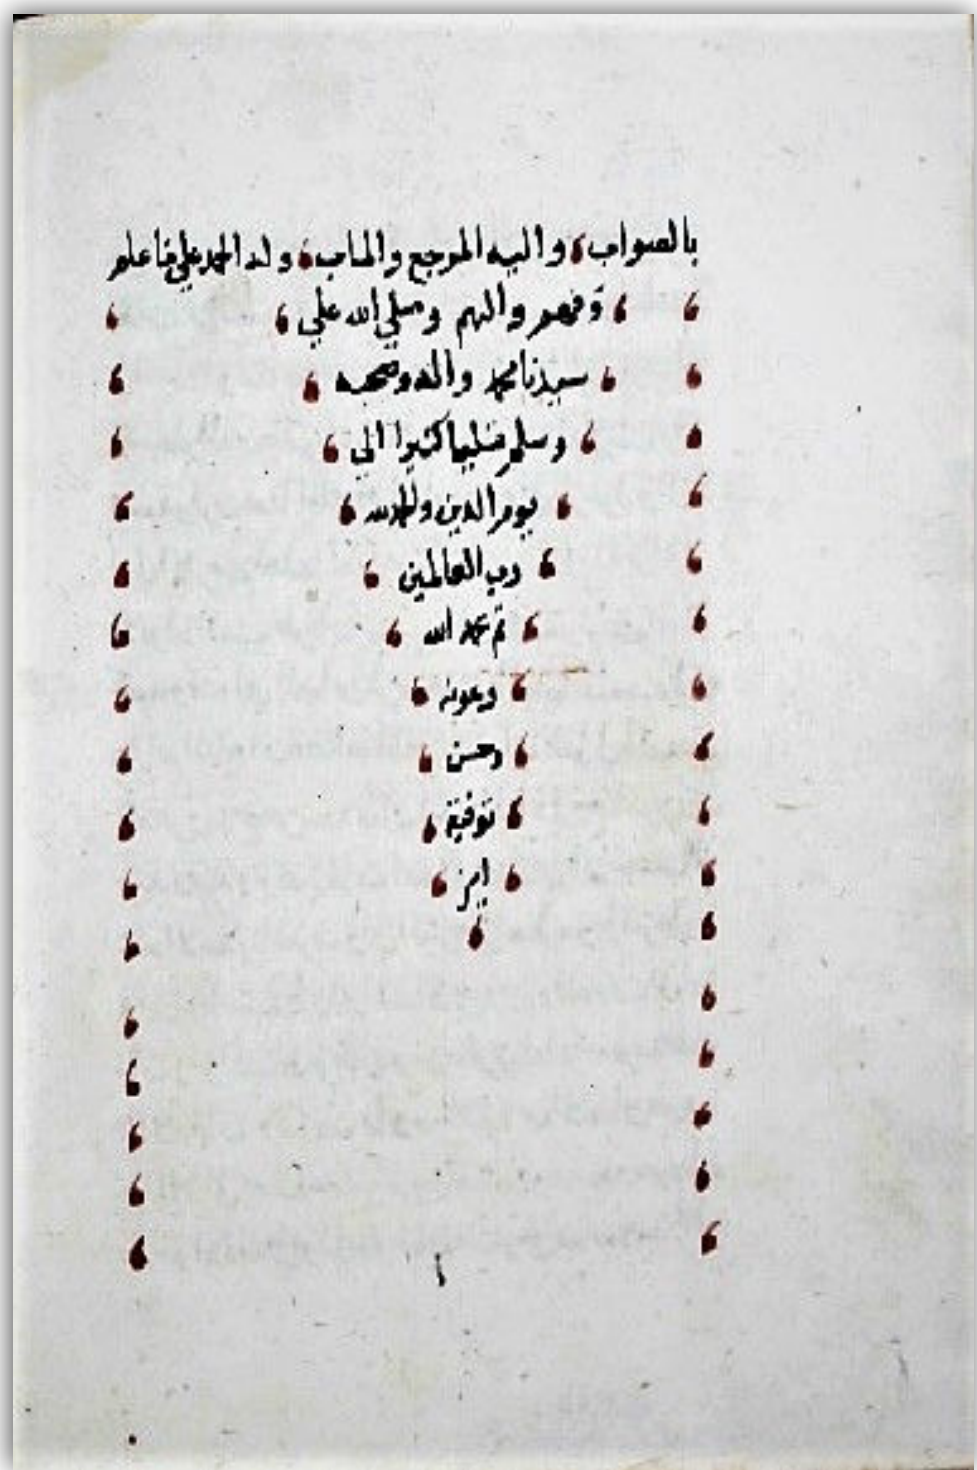 بالصواب، واليه المرجع والماب، وله الحمد علي ما علم
، وفهم والهم وصلي الله علي ،
، سيدنا محمد واله وصحبه ،
، وسلم تسليما كثيرا الي ،
، يوم الدين والحمد لله ،
، رب العالمين ،
، تم بحمد الله ،
، وعونه ،
، وحسن ،
، توفيقه ،